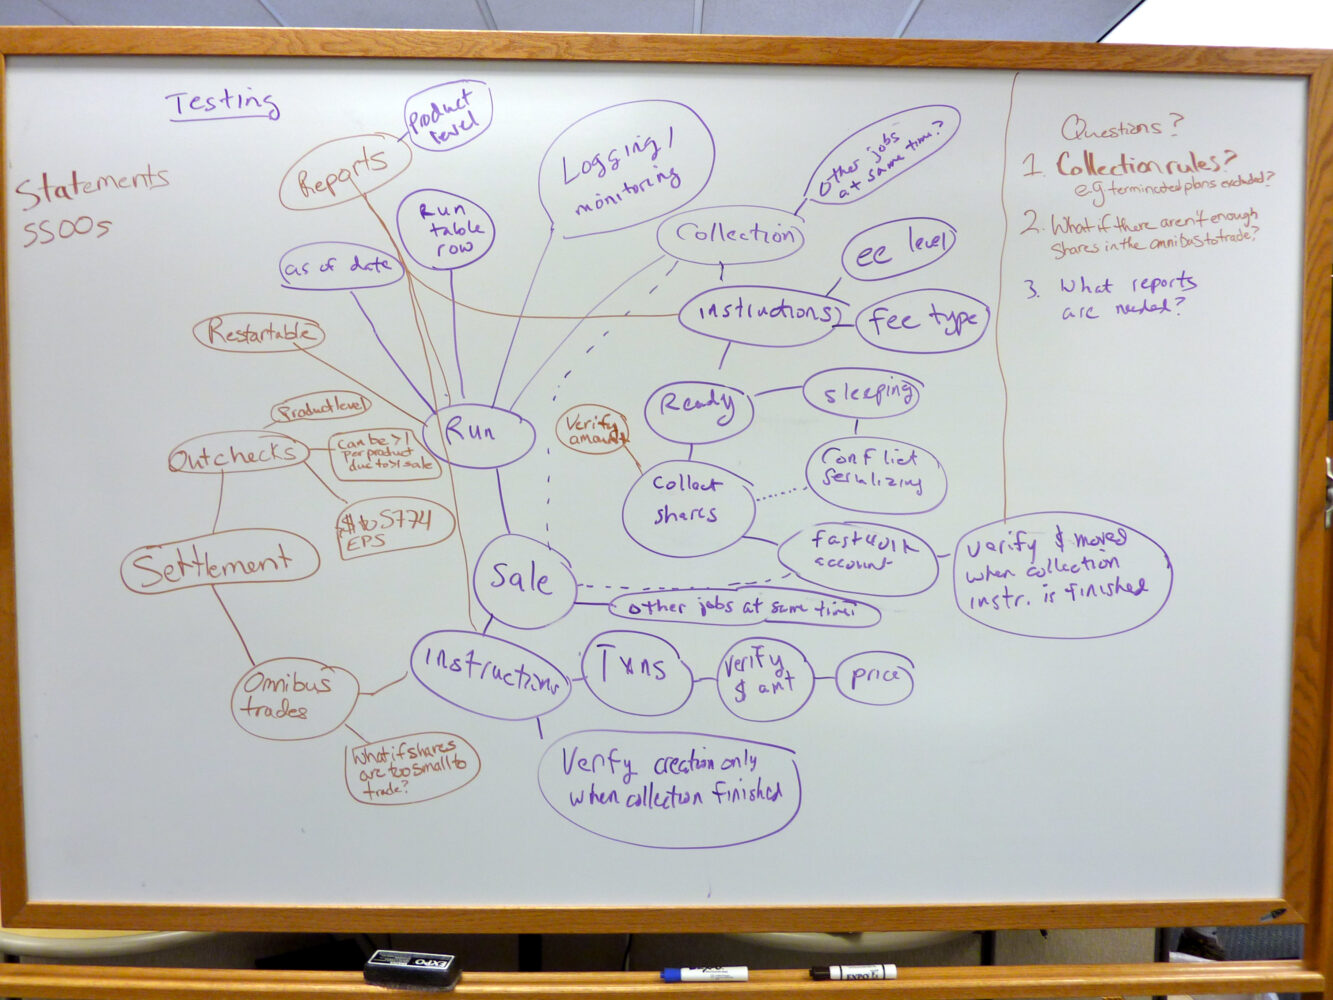 Testing
Statements
SSOOs
Reports
Product
level
Run
table
row
as of date
Logging/
monitoring
Collection
Other jobs
at same time?
ee level
instructions
fee type
Restartable
Run
Ready
sleeping
Conflict
Serializing
Verify
amount
Collect
shares
fastwork
account
Verify $ moved
when collection
instr. is finished
Outchecks
Product level
can be >1
per product
due to >1 sale
$ to 5774
EPS
Settlement
Sale
other jobs at same time?
Omnibus
trades
What if shares
are too small to
trade?
instructions
Txns
Verify
$ amt
price
Verify creation only
when collection finished
Questions?
1. Collection rules?
e.g terminated plans excluded?
2. What if there aren't enough
shares in the omnibus to trade?
3. What reports
are needed?
EXPO
EXPO